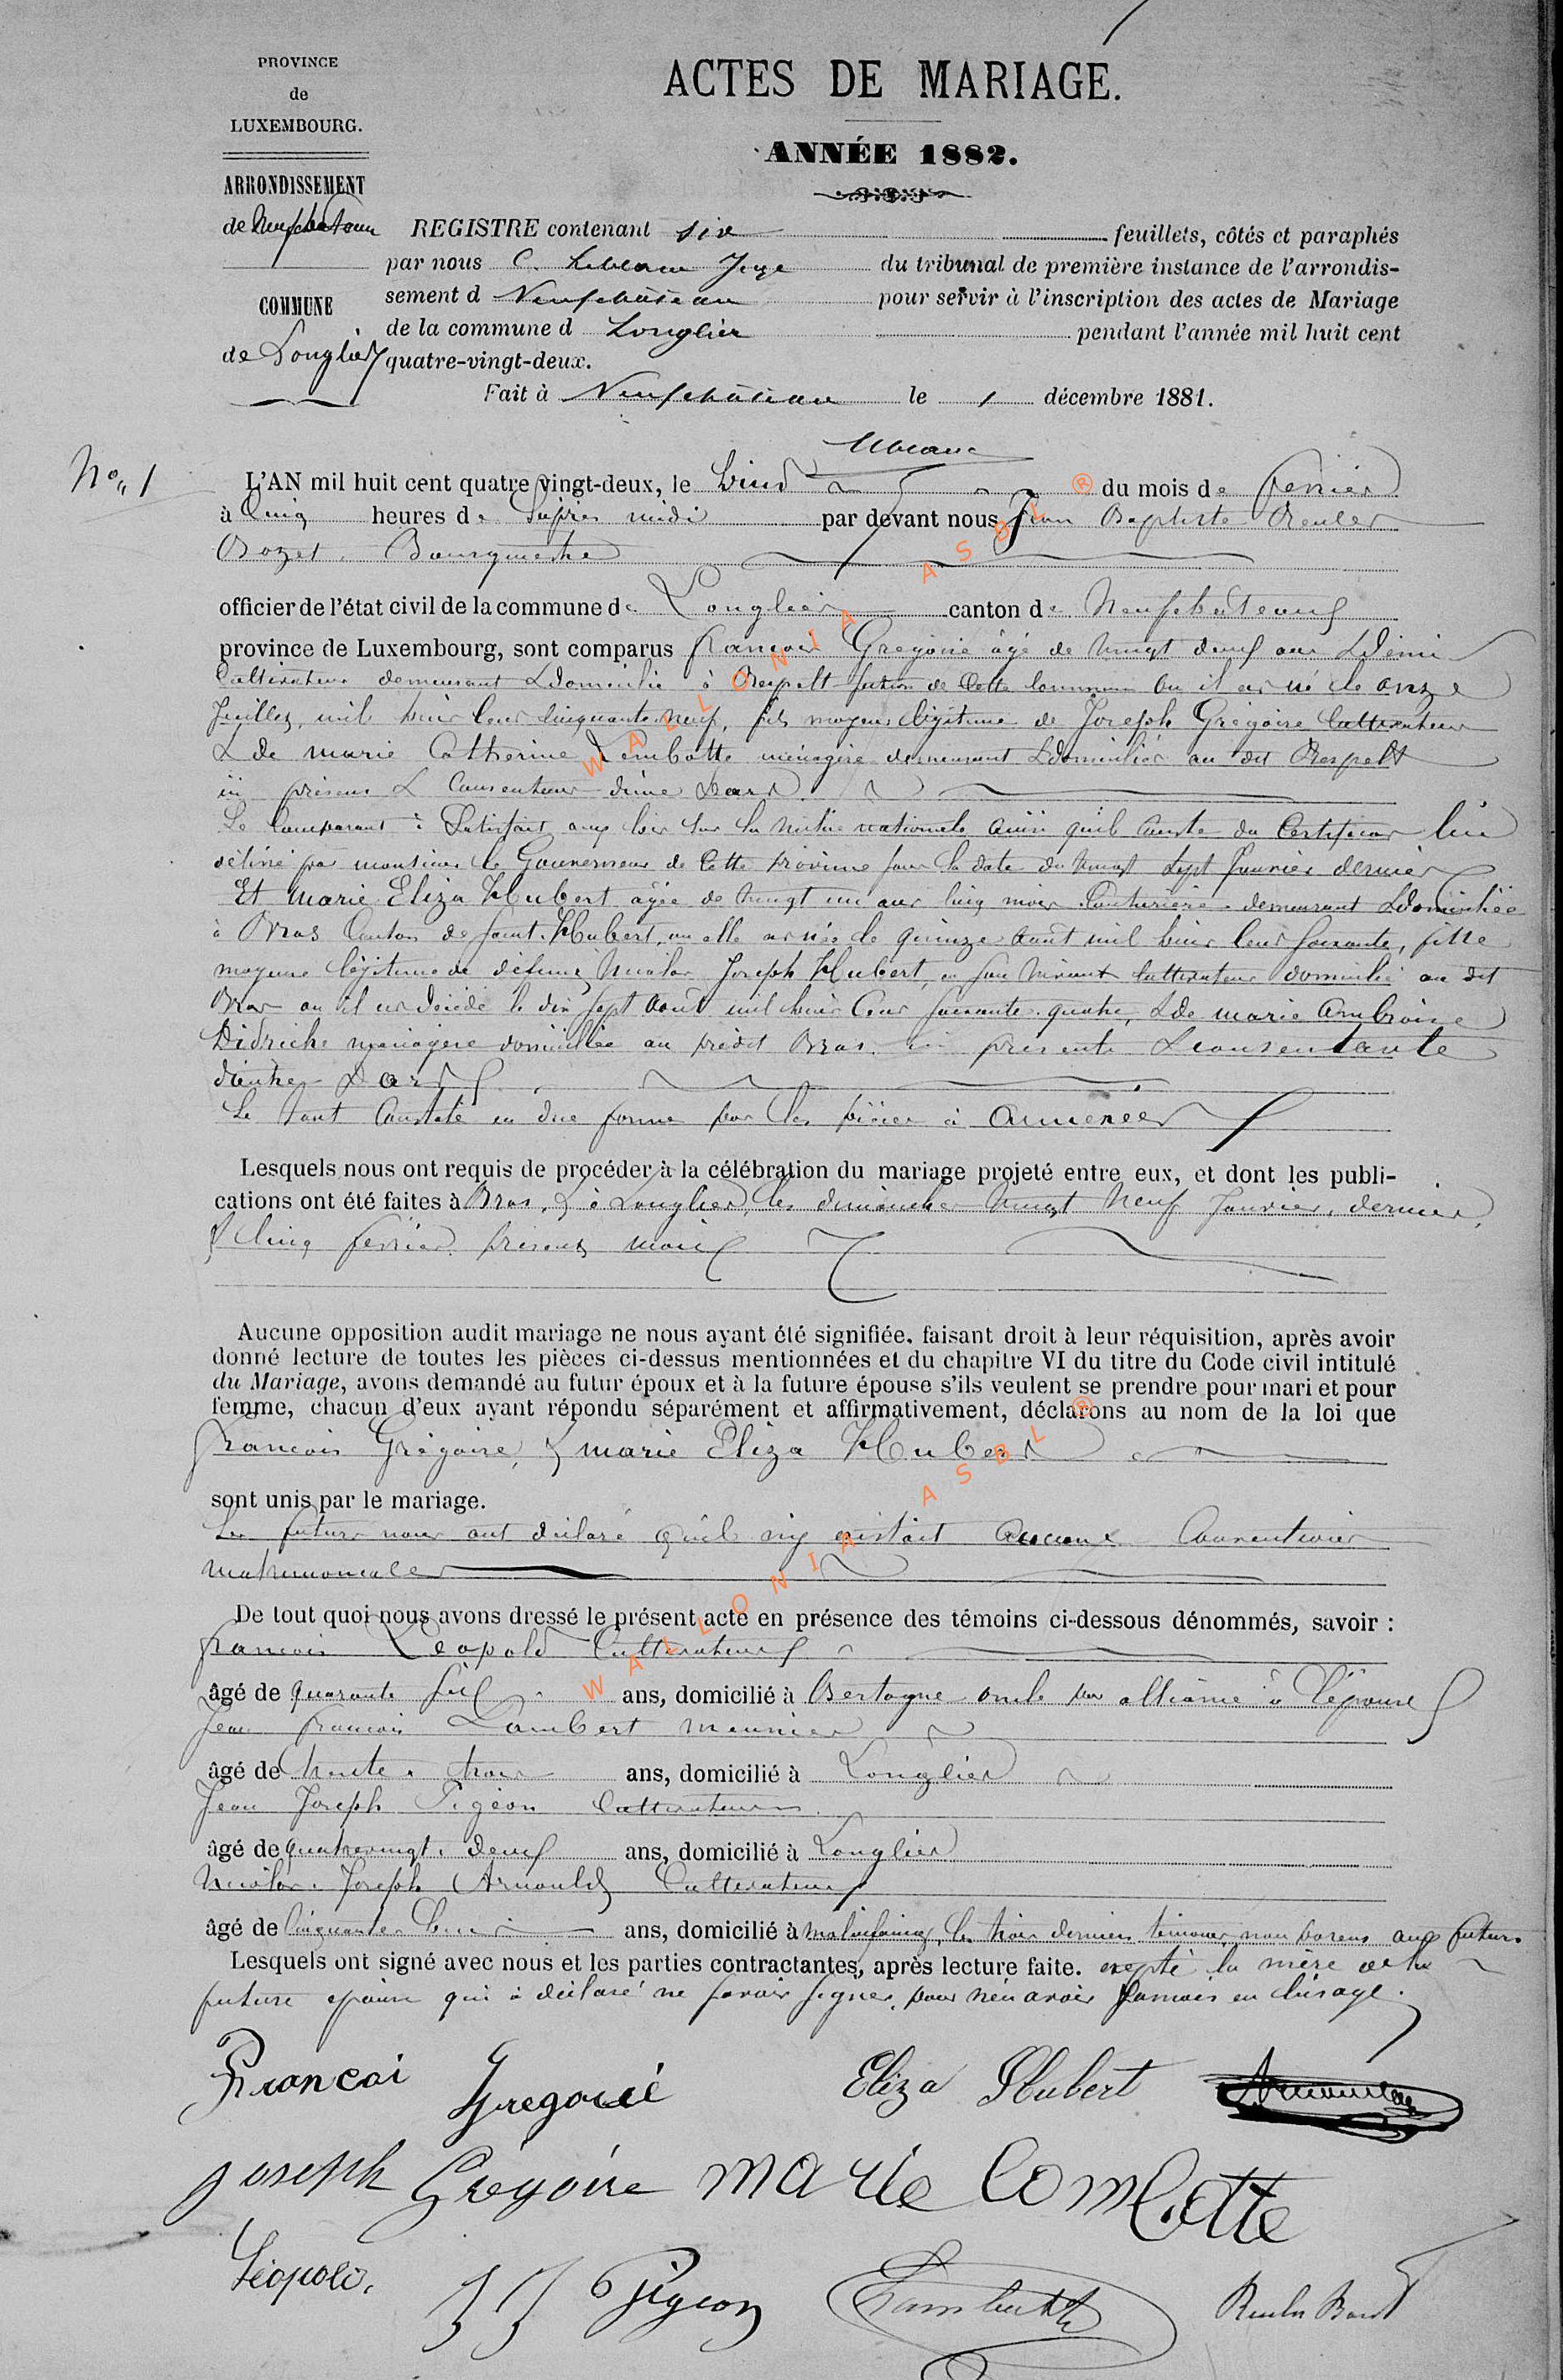 PROVINCE
de
LUXEMBOURG.
ARRONDISSEMENT
de Neufchateau
COMMUNE
de Longlier
ACTES DE MARIAGE.
ANNÉE 1882.
REGISTRE contenant six feuillets, côtés et paraphés
par nous C. Juge du tribunal de première instance de l'arrondis-
sement d Neufchâteau pour servir à l'inscription des actes de Mariage
de la commune d Longlier pendant l'année mil huit cent
quatre-vingt-deux.
Fait à Neufchâteau le 1 décembre 1881.
No 1
L'AN mil huit cent quatre vingt-deux, le du mois de fevrier
à Cinq heures de l'après midi par devant nous Jean Baptiste Reuler
Rozet Bourgmestre
officier de l'état civil de la commune de Longlier canton de Neufchateau
province de Luxembourg, sont comparus francois Gregoire âgé de vingt deux ans & demi
Cultivateur demeurant & domicilié à Respelt section de Cette Commune ou il est né le onze
Juillet mil huit Cent Cinquante neuf, fils majeur légitime de Joseph Grégoire Cultivateur
& de marie Catherine Lembotte ménagère demeurant & domiciliés au dit Respelt
ici présens & Consentans d'une part
Le Comparant à Satisfait aux lois sur la milice nationale ainsi qu'il Conste du Certificat lui
délivré par monsieur le Gouverneur de Cette province sous la date du vingt sept Janvier dernier
Et marie Eliza Hubert agée de vingt un ans Cinq mois Couturière demeurant & domiciliée
à Bras Canton de Saint Hubert, ou elle est née le quinze août mil huit Cent soixante, fille
majeure légitime de défunt Nicolas Joseph Hubert, en son vivant Cultivateur domicilié au dit
Bras ou il est décédé le dix sept août mil huit Cent soixante quatre, & de marie Ambroise
Didriche ménagère domiciliée au prédit Bras ici présente & consentante
d'autre part
Le tout Constaté en due forme par les pièces à annexées
Lesquels nous ont requis de procéder à la célébration du mariage projeté entre eux, et dont les publi-
cations ont été faites à Bras, & à Longlier, les dimanches vingt neuf Janvier dernier
& Cinq fevrier présent mois
Aucune opposition audit mariage ne nous ayant été signifiée, faisant droit à leur réquisition, après avoir
donné lecture de toutes les pièces ci-dessus mentionnées et du chapitre VI du titre du Code civil intitulé
du Mariage, avons demandé au futur époux et à la future épouse s'ils veulent se prendre pour mari et pour
femme, chacun d'eux ayant répondu séparément et affirmativement, déclarons au nom de la loi que
francois Grégoire, & marie Eliza Hubert
sont unis par le mariage.
Les futurs nous ont déclaré qu'il n'y existait aucune Convention
matrimoniale
De tout quoi nous avons dressé le présent acte en présence des témoins ci-dessous dénommés, savoir :
francois Leopold Cultivateur
âgé de quarante six ans, domicilié à Bertogne oncle par alliance à l'épouse
Jean francois Lambert meunier
âgé de trente trois ans, domicilié à Longlier
Jean Joseph Pigeon Cultivateur
âgé de quatrevingt deux ans, domicilié à Longlier
Nicolas Joseph Arnould Cultivateur
âgé de Cinquante ans, domicilié à les trois derniers témoins non parens aux futurs
Lesquels ont signé avec nous et les parties contractantes, après lecture faite. excepté la mère de la
future épouse qui à déclaré ne savoir signer, pour n'en avoir jamais eu l'usage.
Francoi Gregoire Eliza Hubert
Joseph Grégoire marie lombotte
Léopold. J J Pigeon Lambert
WALLONIA ASBL ®
WALLONIA ASBL ®